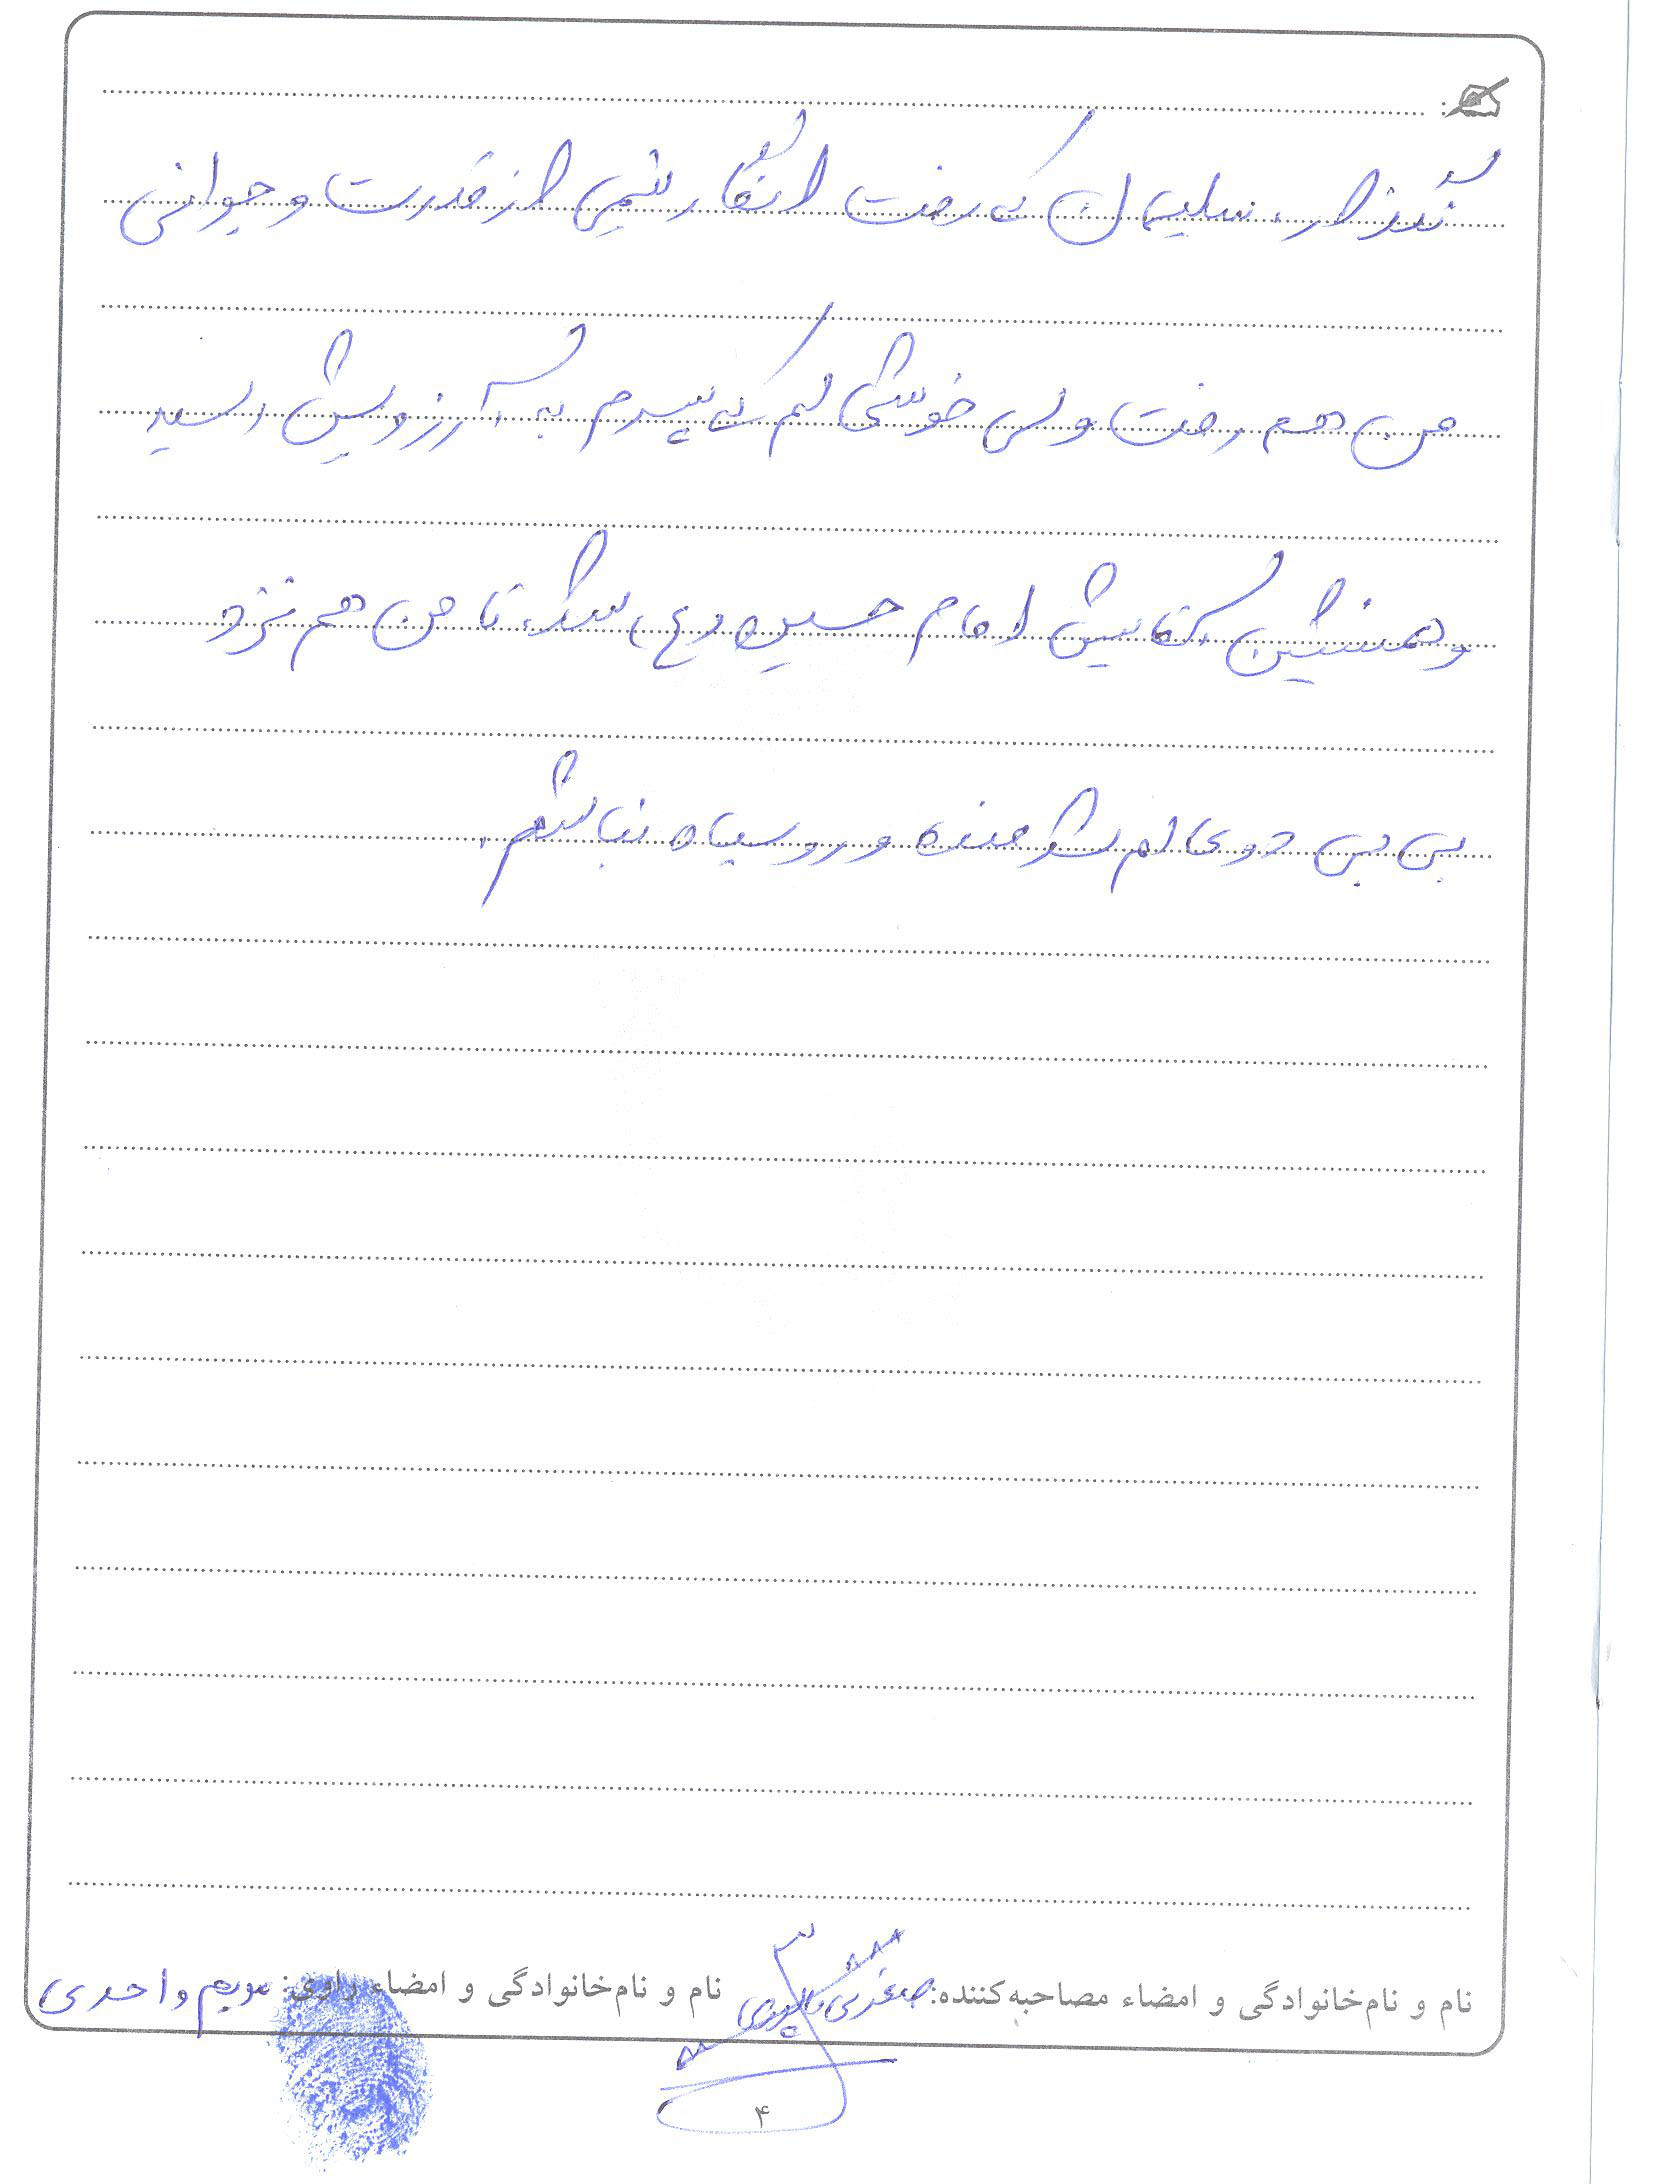 نگذارد، سلیمان که رفت انگار نیمی از قدرت و جوانی
من هم رفت ولی خوشحالم که پسرم به آرزویش رسید
و همنشین آقایش امام حسین (ع) شد، تا من هم نزد
بی بی دو عالم شرمنده و رو سیاه نباشم.
نام و نام‌خانوادگی و امضاء مصاحبه‌کننده: صغری نام و نام‌خانوادگی و امضاء راوی: مریم واحدی
۴